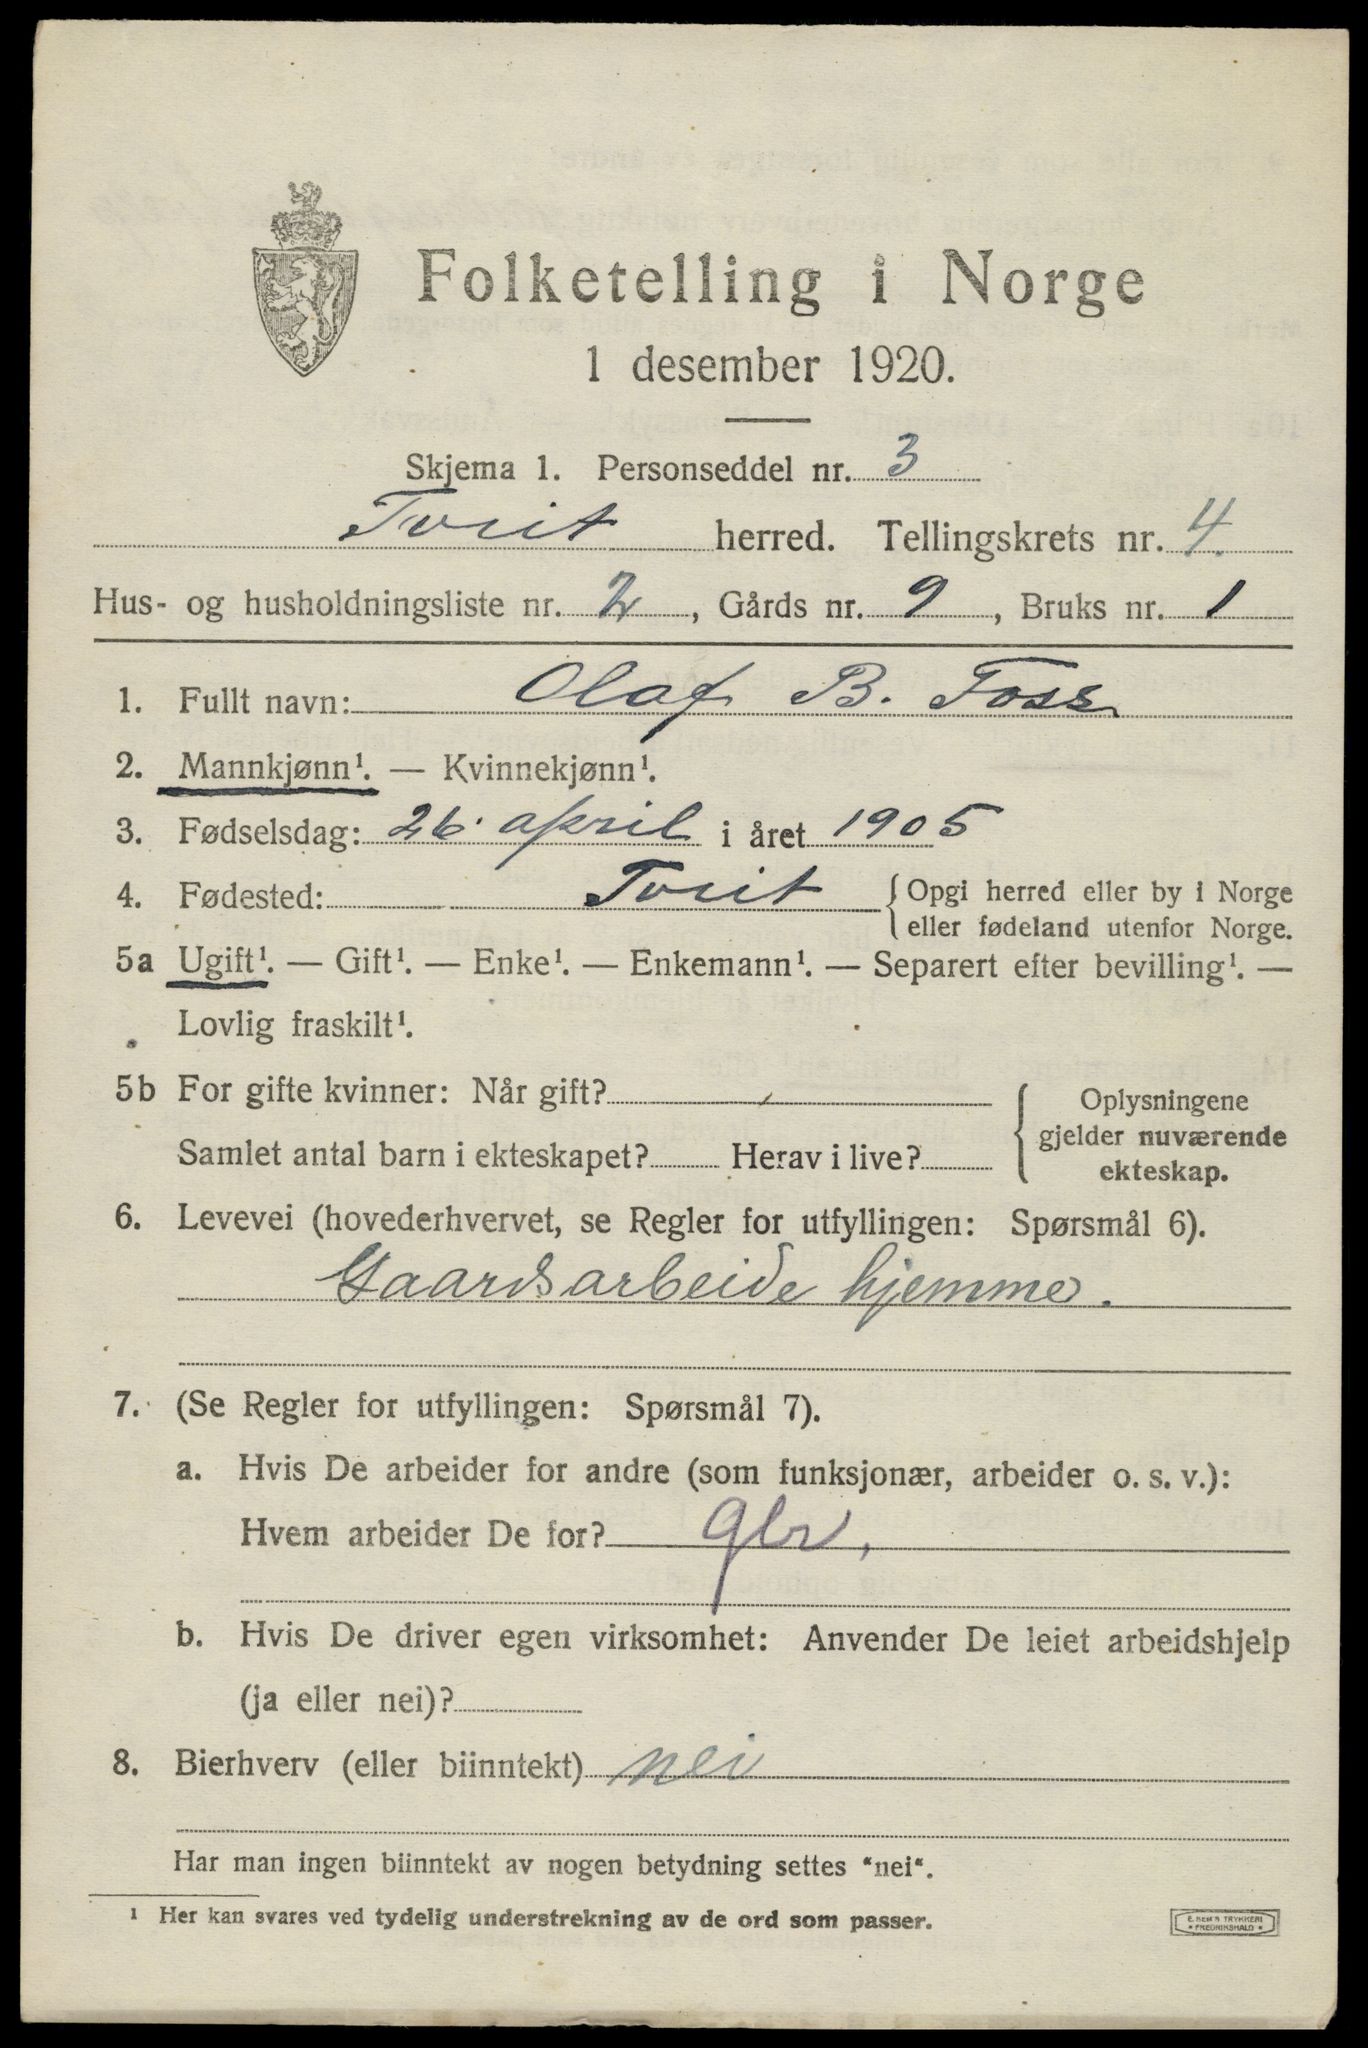 Folketelling i Norge
1 desember 1920.
Skjema 1. Personseddel nr. 3
Tveit herred. Tellingskrets nr. 4.
Hus- og husholdningsliste nr. 2, Gårds nr. 9, Bruks nr. 1
1. Fullt navn: Olaf B. Foss
2. Mannkjønn¹. — Kvinnekjønn¹.
3. Fødselsdag: 26. april i året 1905
4. Fødested: Tveit {Opgi herred eller by i Norge
eller fødeland utenfor Norge.
5a Ugift¹. — Gift¹. — Enke¹. — Enkemann¹. — Separert efter bevilling¹. —
Lovlig fraskilt¹.
5b For gifte kvinner: Når gift?
Samlet antal barn i ekteskapet? Herav i live?
Oplysningene
gjelder nuværende
ekteskap.
6. Levevei (hovederhvervet, se Regler for utfyllingen: Spørsmål 6).
Gaardsarbeide hjemme.
7. (Se Regler for utfyllingen: Spørsmål 7).
a. Hvis De arbeider for andre (som funksjonær, arbeider o. s. v.):
Hvem arbeider De for? gbr,
b. Hvis De driver egen virksomhet: Anvender De leiet arbeidshjelp
(ja eller nei)?
8. Bierhverv (eller biinntekt) nei
Har man ingen biinntekt av nogen betydning settes "nei".
¹ Her kan svares ved tydelig understrekning av de ord som passer.